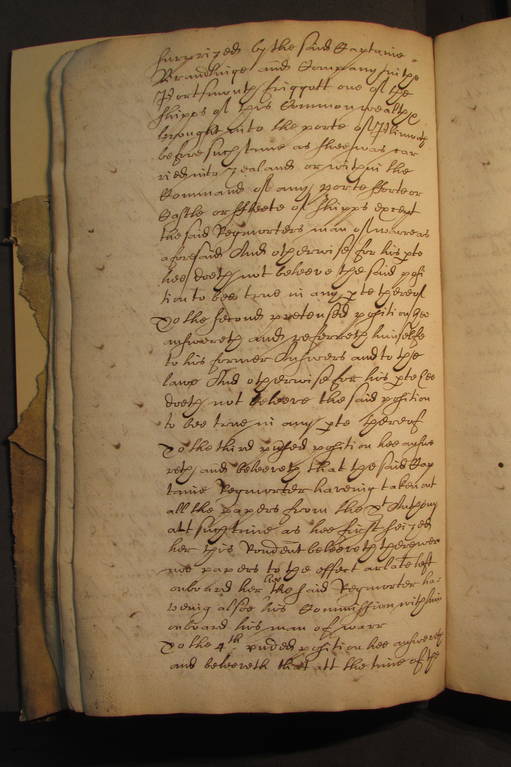 surprized by the said Captaine
Brandlinge and Company in the
Portsmouth friggott one of the
shipps of this Common wealth
brought into the porte of Plimouth
before such time as shee was car
ried into Zealand or within the
Command of any porte fforte or
Castle or ffleete of shipps except
the said Regmorters man of warr as
aforesaid And otherwise for his pte
hee doeth not beleeve the said posi
tion to bee true in any pte thereof
To the second pretensed position hee
answereth and referreth himselfe
to his former Answers and to the
lawe And otherwise for his pte hee
doeth not beleeve the said position
to bee true in any pte thereof
To the third position hee answe
reth and beleeveth that the said Cap
taine Regmorter haveing taken out
all the papers from the St Anthony
att such time as hee first seized
her this Rendent beleeveth there were
noe papers to the effect arlate left
onboard her hee the said Regmorter ha=
veing alsoe his Commission with him
onboard his man of warr
To the 4th position hee answereth
and beleeveth that att the time of the